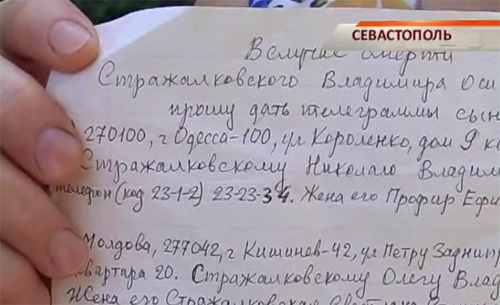 СЕВАСТОПОЛЬ
В случае смерти
Стражалковского Владимира Оси
прошу дать телеграммы сын
270100, г Одесса-100, ул Короленко, дом 9 к
Стражалковскому Николаю Владим
телефон (код 23-1-2) 23-23-34. Жена его Профир Ефи
Молдова, 277042, г Кишинев-42, ул Петру Заднип
квартара 20. Стражалковскому Олегу Влад
Жена его Стражалковская